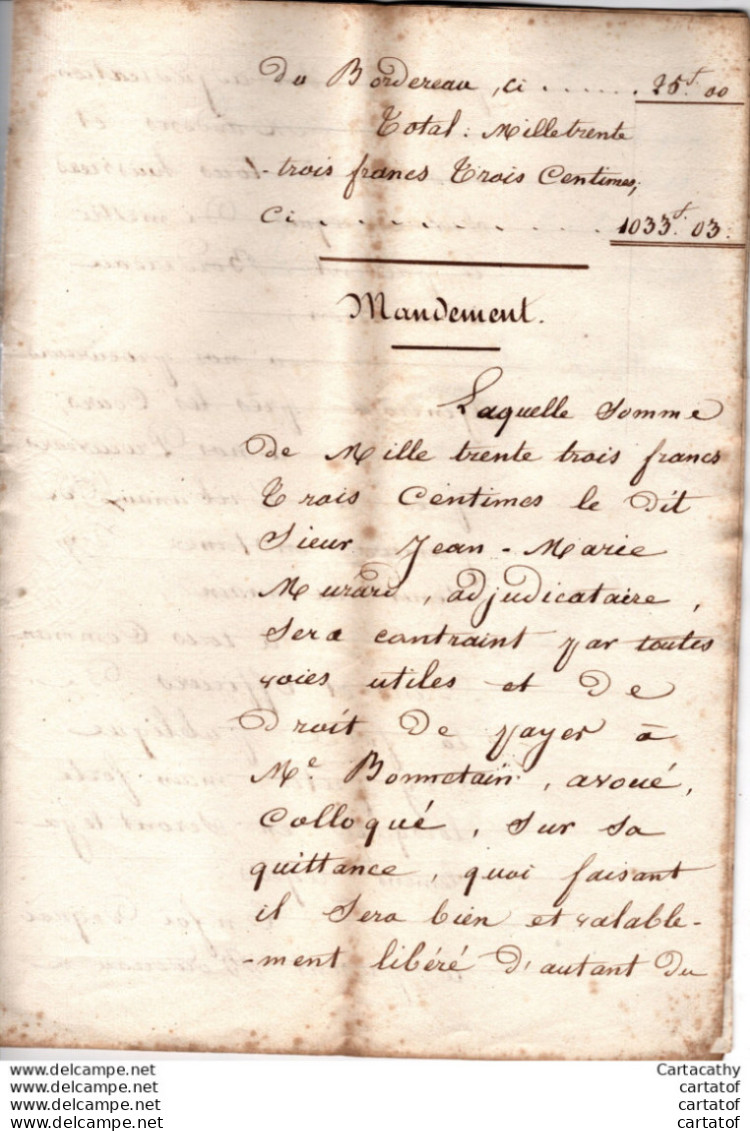 du Bordereau, ci ...... 25.f 00
Total: Mille trente
-trois francs Trois Centimes;
Ci ............ 1033.f 03.
Mandement.
Laquelle Somme
de Mille trente trois francs
Trois Centimes le dit
Sieur Jean-Marie
Murard, adjudicataire,
Sera contraint par toutes
voies utiles et de
Droit de payer à
Me Bonnetain, avoué,
Colloqué, Sur Sa
quittance, quoi faisant
il Sera bien et valable-
-ment libéré d'autant du
www.delcampe.net
www.delcampe.net
www.delcampe.net
www.delcampe.net
Cartacathy
cartatof
cartatof
cartatof